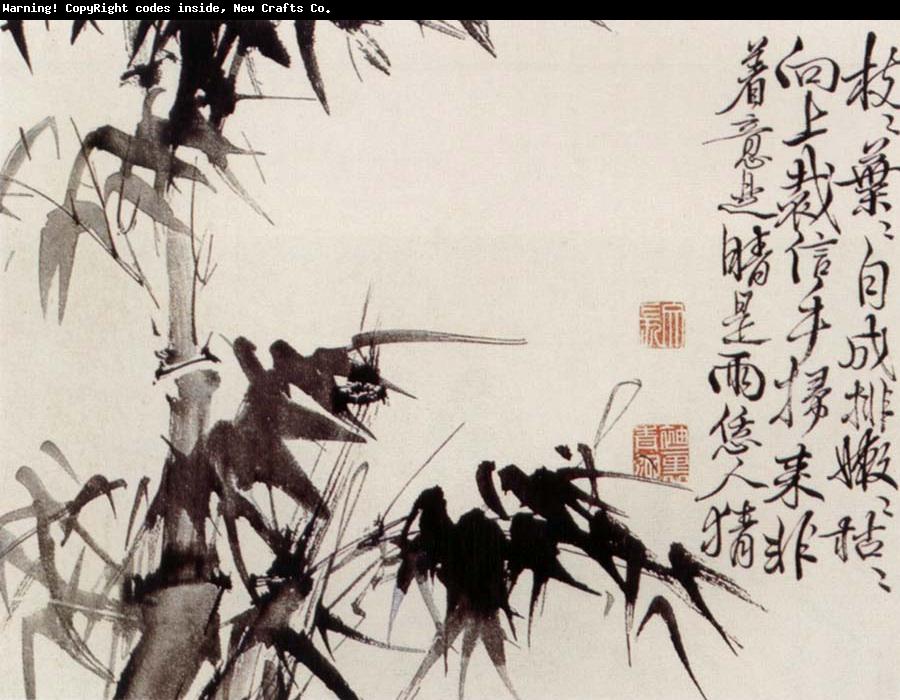 Warning! CopyRight codes inside, New Crafts Co.
枝〻葉〻自成排嫩〻枯〻
向上裁信手掃来非
着意是晴是雨恁人猜